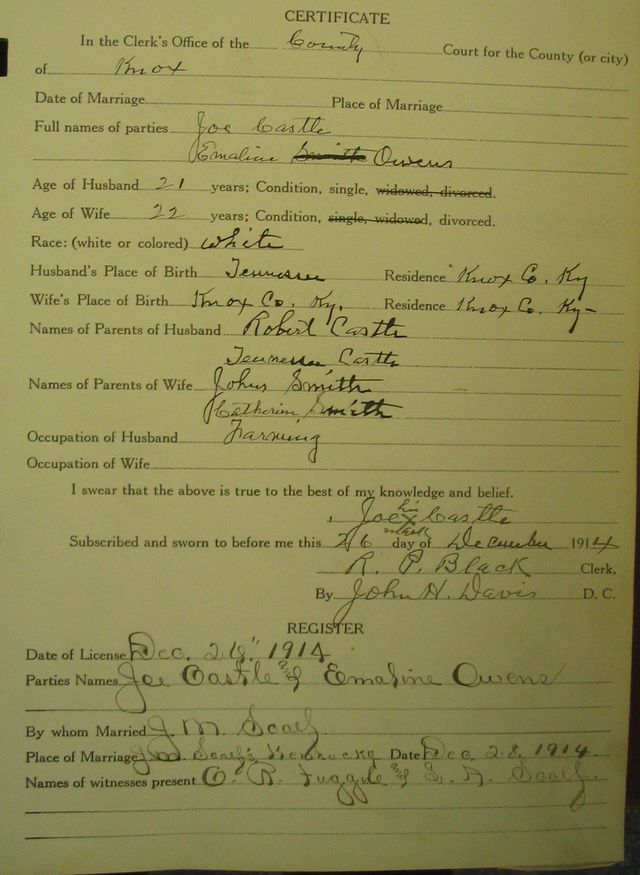 CERTIFICATE
In the Clerk's Office of the County Court for the County (or city)
of Knox
Date of Marriage Place of Marriage
Full names of parties Joe Castle
Emaline Smith Owens
Age of Husband 21 years; Condition, single, widowed, divorced.
Age of Wife 22 years; Condition, single, widowed, divorced.
Race: (white or colored) white
Husband's Place of Birth Tennessee Residence Knox Co. Ky
Wife's Place of Birth Knox Co. Ky. Residence Knox Co. Ky-
Names of Parents of Husband Robert Castle
Tennessee Castle
Names of Parents of Wife Johns Smith
Catherine Smith
Occupation of Husband Farming
Occupation of Wife
I swear that the above is true to the best of my knowledge and belief.
his
Joe x Castle
mark
Subscribed and sworn to before me this 26 day of December 1914
R. P. Black Clerk.
By John H. Davis D. C.
REGISTER
Date of License Dec. 26" 1914
Parties Names Joe Castle and Emaline Owens
By whom Married J. M.
Place of Marriage J. M. Date Dec. 28, 1914.
Names of witnesses present R. and